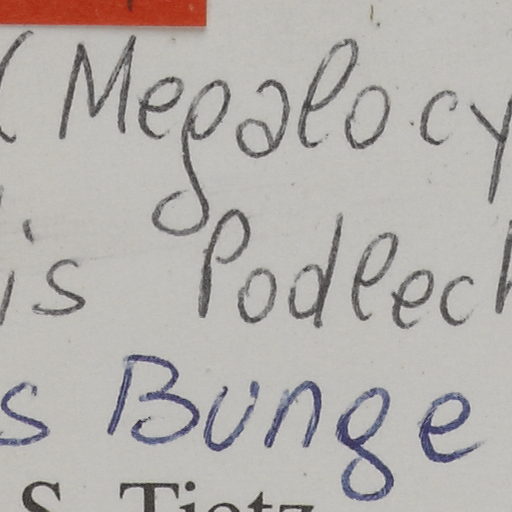 (Megalocy
is Podlech
s Bunge
S. Tietz